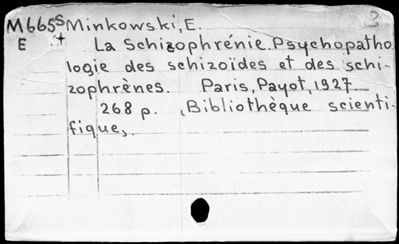 M665S Minkowski, E. 3
E + La Schizophrénie. Psychopatho
logie des schizoïdes et des schi-
zophrènes. Paris, Payot, 1927
268 p. (Bibliothèque scienti-
fique,